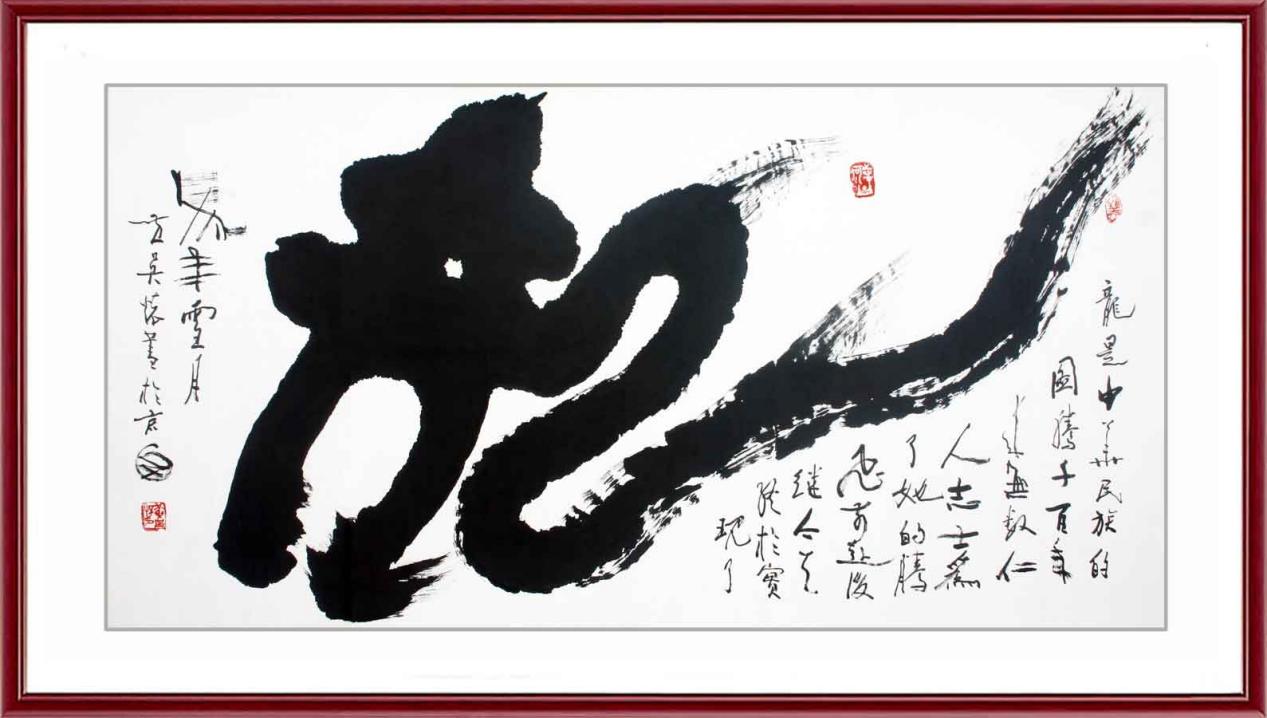 龍
龍是中華民族的
圖騰千百年
来無數仁
人志士為
了她的騰
飛前赴後
继今天
終於實
現了
年雪月
吴懷於京